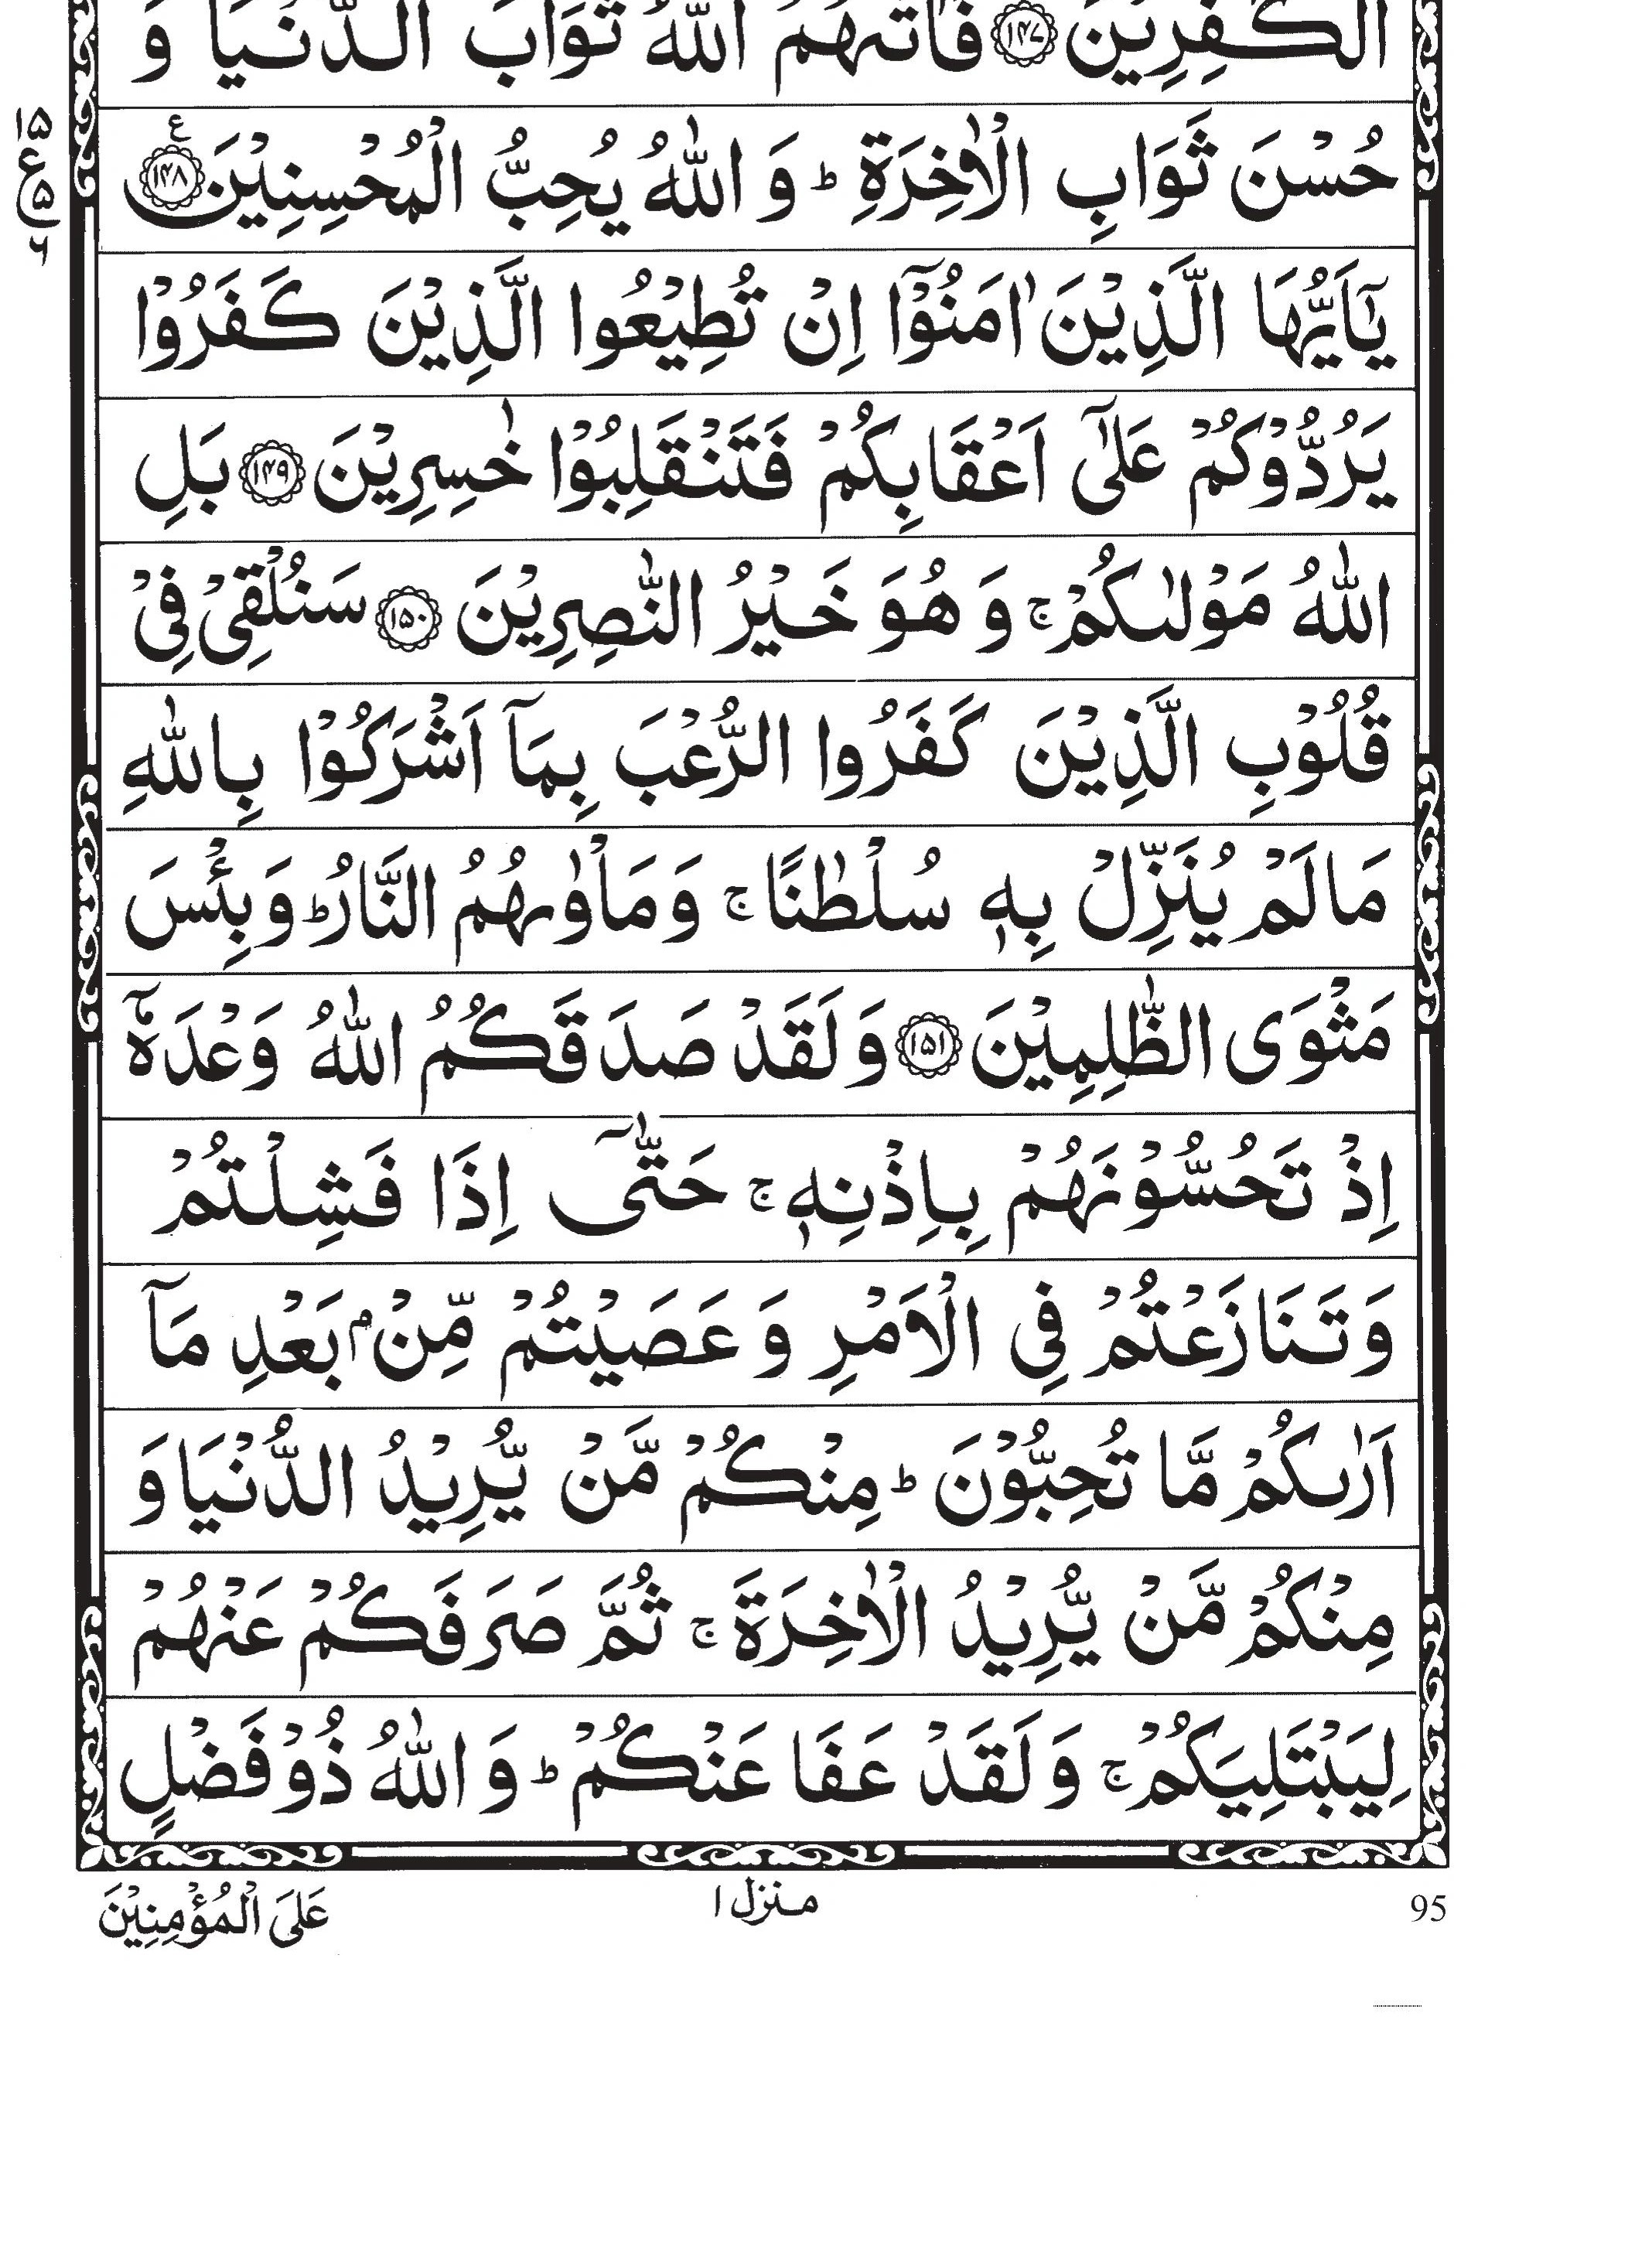 الْكٰفِرِيْنَ ۝۱۴۷ فَاٰتٰىهُمُ اللّٰهُ ثَوَابَ الدُّنْيَا وَ
حُسْنَ ثَوَابِ الْاٰخِرَةِ ؕ وَ اللّٰهُ يُحِبُّ الْمُحْسِنِيْنَ ۝۱۴۸ ع
۱۵
ع
۵
۶
يٰۤاَيُّهَا الَّذِيْنَ اٰمَنُوْۤا اِنْ تُطِيْعُوا الَّذِيْنَ كَفَرُوْا
يَرُدُّوْكُمْ عَلٰۤى اَعْقَابِكُمْ فَتَنْقَلِبُوْا خٰسِرِيْنَ ۝۱۴۹ بَلِ
اللّٰهُ مَوْلٰىكُمْ ۚ وَ هُوَ خَيْرُ النّٰصِرِيْنَ ۝۱۵۰ سَنُلْقِيْ فِيْ
قُلُوْبِ الَّذِيْنَ كَفَرُوا الرُّعْبَ بِمَاۤ اَشْرَكُوْا بِاللّٰهِ
مَا لَمْ يُنَزِّلْ بِهٖ سُلْطٰنًا ۚ وَ مَاْوٰىهُمُ النَّارُ ؕ وَ بِئْسَ
مَثْوَى الظّٰلِمِيْنَ ۝۱۵۱ وَ لَقَدْ صَدَقَكُمُ اللّٰهُ وَعْدَهٗۤ
اِذْ تَحُسُّوْنَهُمْ بِاِذْنِهٖ ۚ حَتّٰۤى اِذَا فَشِلْتُمْ
وَ تَنَازَعْتُمْ فِي الْاَمْرِ وَ عَصَيْتُمْ مِّنْۢ بَعْدِ مَاۤ
اَرٰىكُمْ مَّا تُحِبُّوْنَ ؕ مِنْكُمْ مَّنْ يُّرِيْدُ الدُّنْيَا وَ
مِنْكُمْ مَّنْ يُّرِيْدُ الْاٰخِرَةَ ۚ ثُمَّ صَرَفَكُمْ عَنْهُمْ
لِيَبْتَلِيَكُمْ ۚ وَ لَقَدْ عَفَا عَنْكُمْ ؕ وَ اللّٰهُ ذُوْ فَضْلٍ
95
منزل ۱
عَلَى الْمُؤْمِنِيْنَ